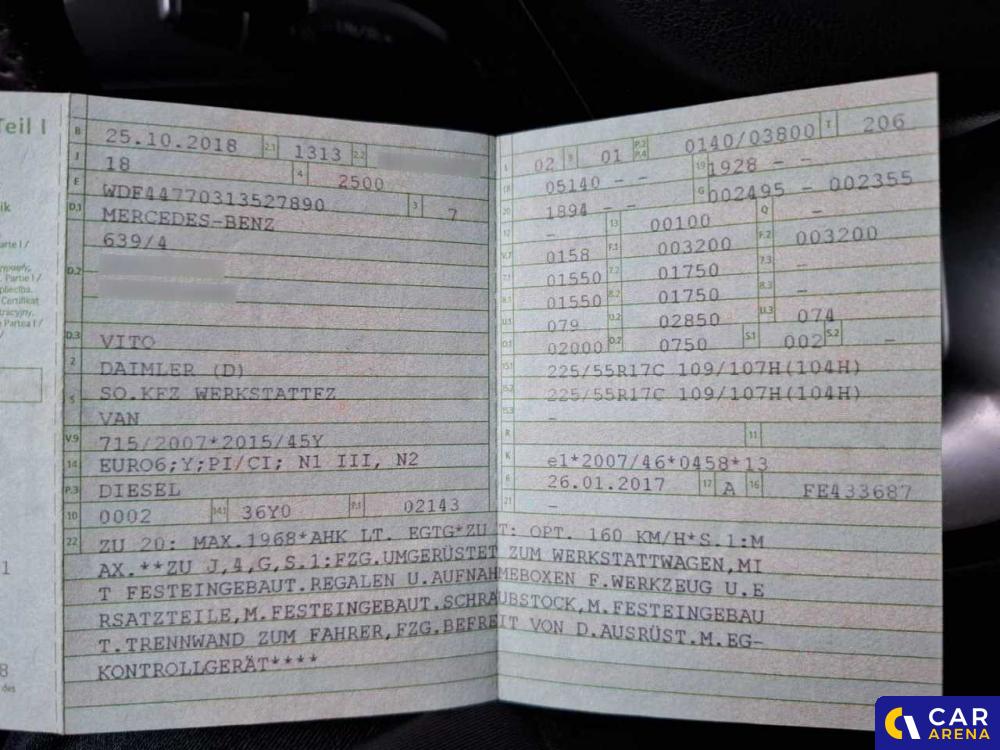 Teil I
B 25.10.2018 2.1 1313 2.2
J 18 4 2500
E WDF44770313527890 3 7
D.1 MERCEDES-BENZ
639/4
D.2
D.3 VITO
2 DAIMLER (D)
5 SO.KFZ WERKSTATTFZ
VAN
V.9 715/2007*2015/45Y
14 EURO6;Y;PI/CI; N1 III, N2
P.3 DIESEL
10 0002 14.1 36Y0 P.1 02143
L 02 9 01 P.2 P.4 0140/03800 T 206
18 05140 - - 19 1928 - -
20 1894 - - G 002495 - 002355
12 - 13 00100 Q -
V.7 0158 F.1 003200 F.2 003200
7.1 01550 7.2 01750 7.3 -
8.1 01550 8.2 01750 8.3 -
U.1 079 U.2 02850 U.3 074
O.1 02000 O.2 0750 S.1 002 S.2 -
15.1 225/55R17C 109/107H(104H)
15.2 225/55R17C 109/107H(104H)
15.3 -
R 11
K e1*2007/46*0458*13
6 26.01.2017 17 A 16 FE433687
21 -
22 ZU 20: MAX.1968*AHK LT. EGTG*ZU T: OPT. 160 KM/H*S.1:M
AX.**ZU J,4,G,S.1:FZG.UMGERÜSTET ZUM WERKSTATTWAGEN,MI
T FESTEINGEBAUT.REGALEN U.AUFNAHMEBOXEN F.WERKZEUG U.E
RSATZTEILE,M.FESTEINGEBAUT.SCHRAUBSTOCK,M.FESTEINGEBAU
T.TRENNWAND ZUM FAHRER,FZG.BEFREIT VON D.AUSRÜST.M.EG-
KONTROLLGERÄT****
CAR
ARENA